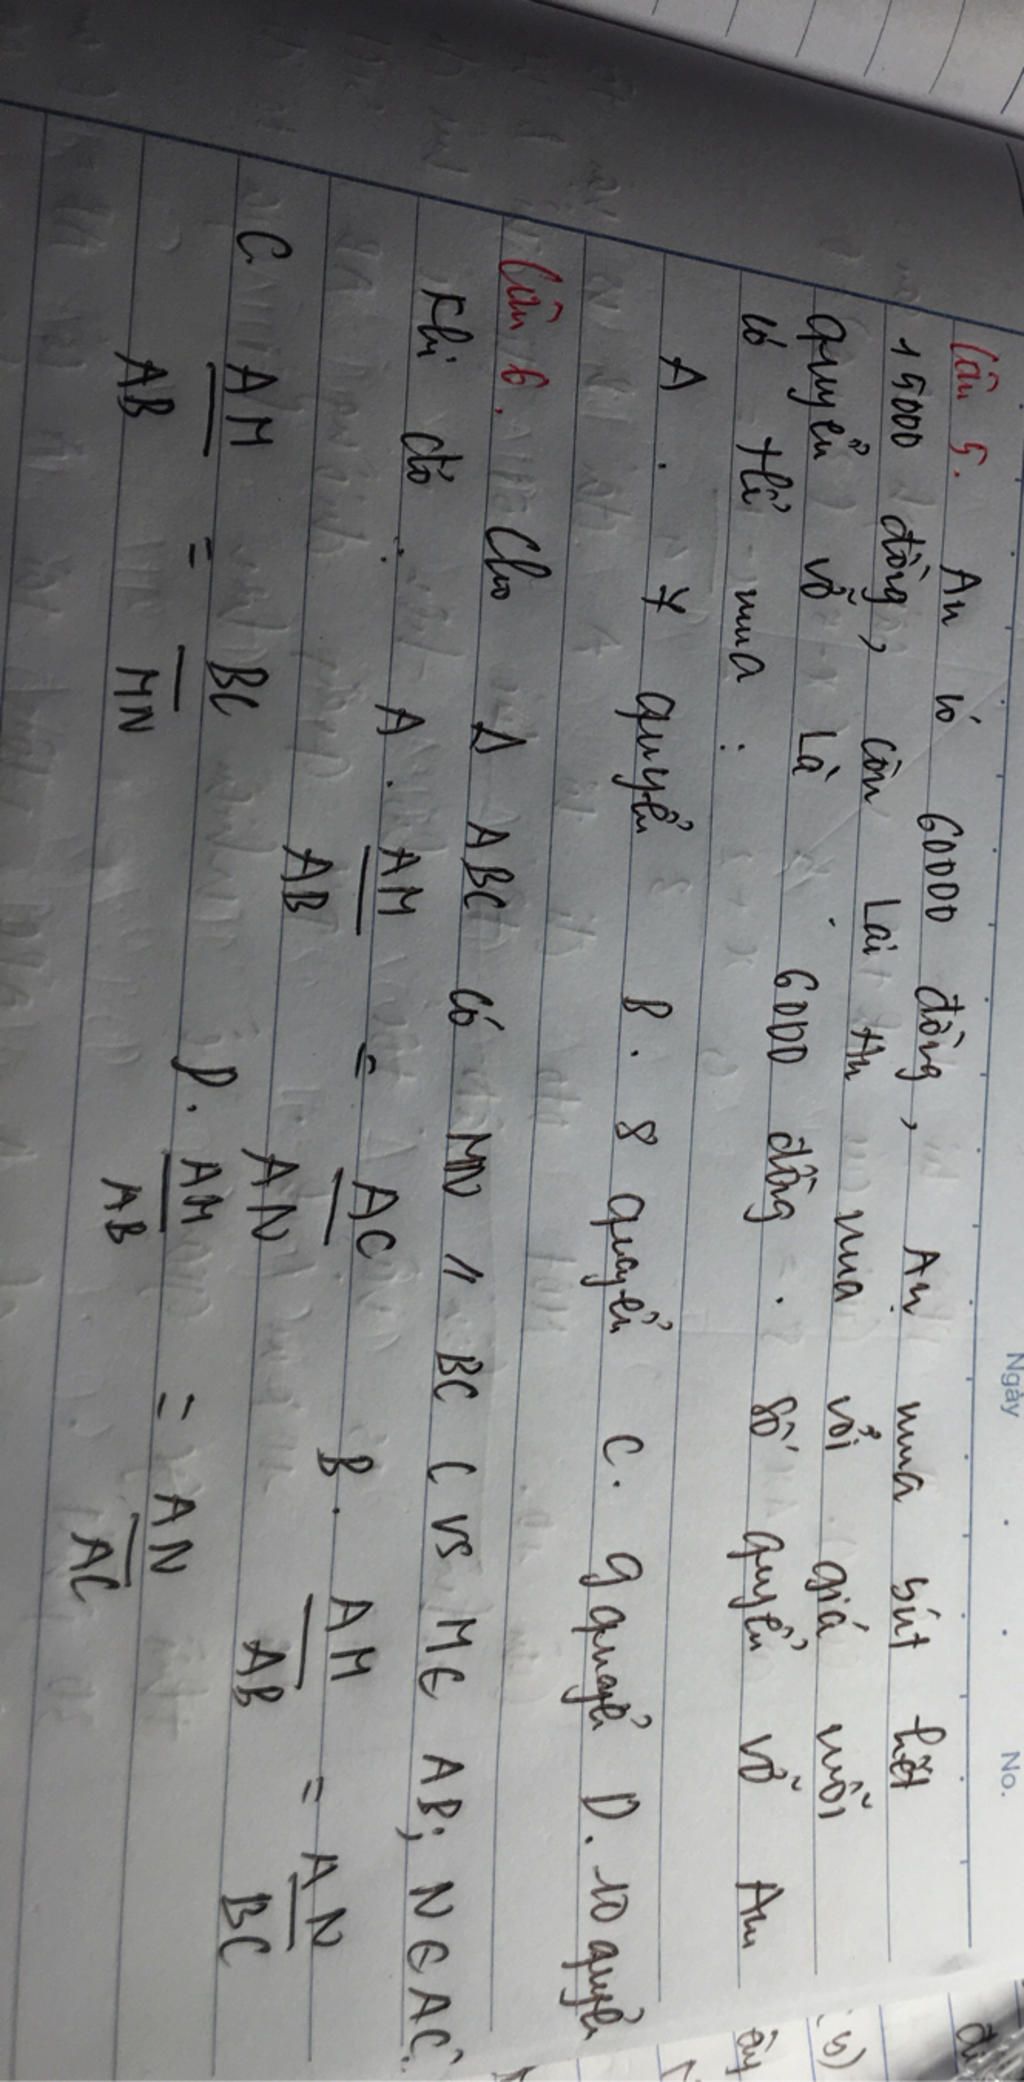 Ngày No.
Câu 5. An có 60000 đồng, An mua bút hết
15000 đồng, còn lại An mua với giá mỗi
quyển vở là 6000 đồng. Số quyển vở An
có thể mua :
A. 7 quyển B. 8 quyển C. 9 quyển D. 10 quyển
Câu 6. Cho Δ ABC có MN // BC ( vs M∈ AB; N ∈ AC.
Khi đó : A. AM/AB = AC/AN B. AM/AB = AN/BC
C. AM/AB = BC/MN D. AM/AB = AN/AC